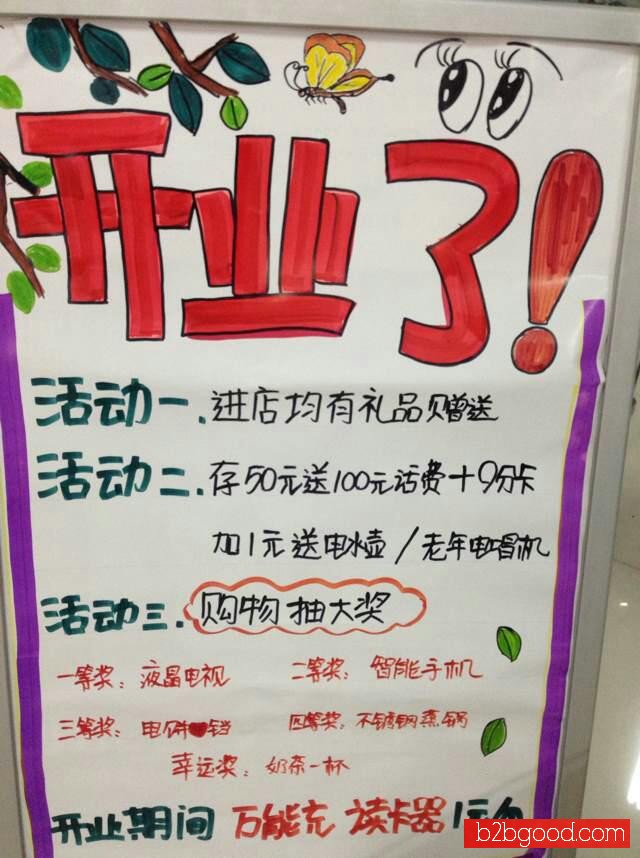 开业了!
活动一.进店均有礼品赠送
活动二.存50元送100元话费+9分卡
加1元送电水壶/老年电唱机
活动三.购物抽大奖
一等奖:液晶电视 二等奖:智能手机
三等奖:电饼铛 四等奖:不锈钢蒸锅
幸运奖:奶茶一杯
开业期间 万能充 读卡器 1元
b2bgood.com